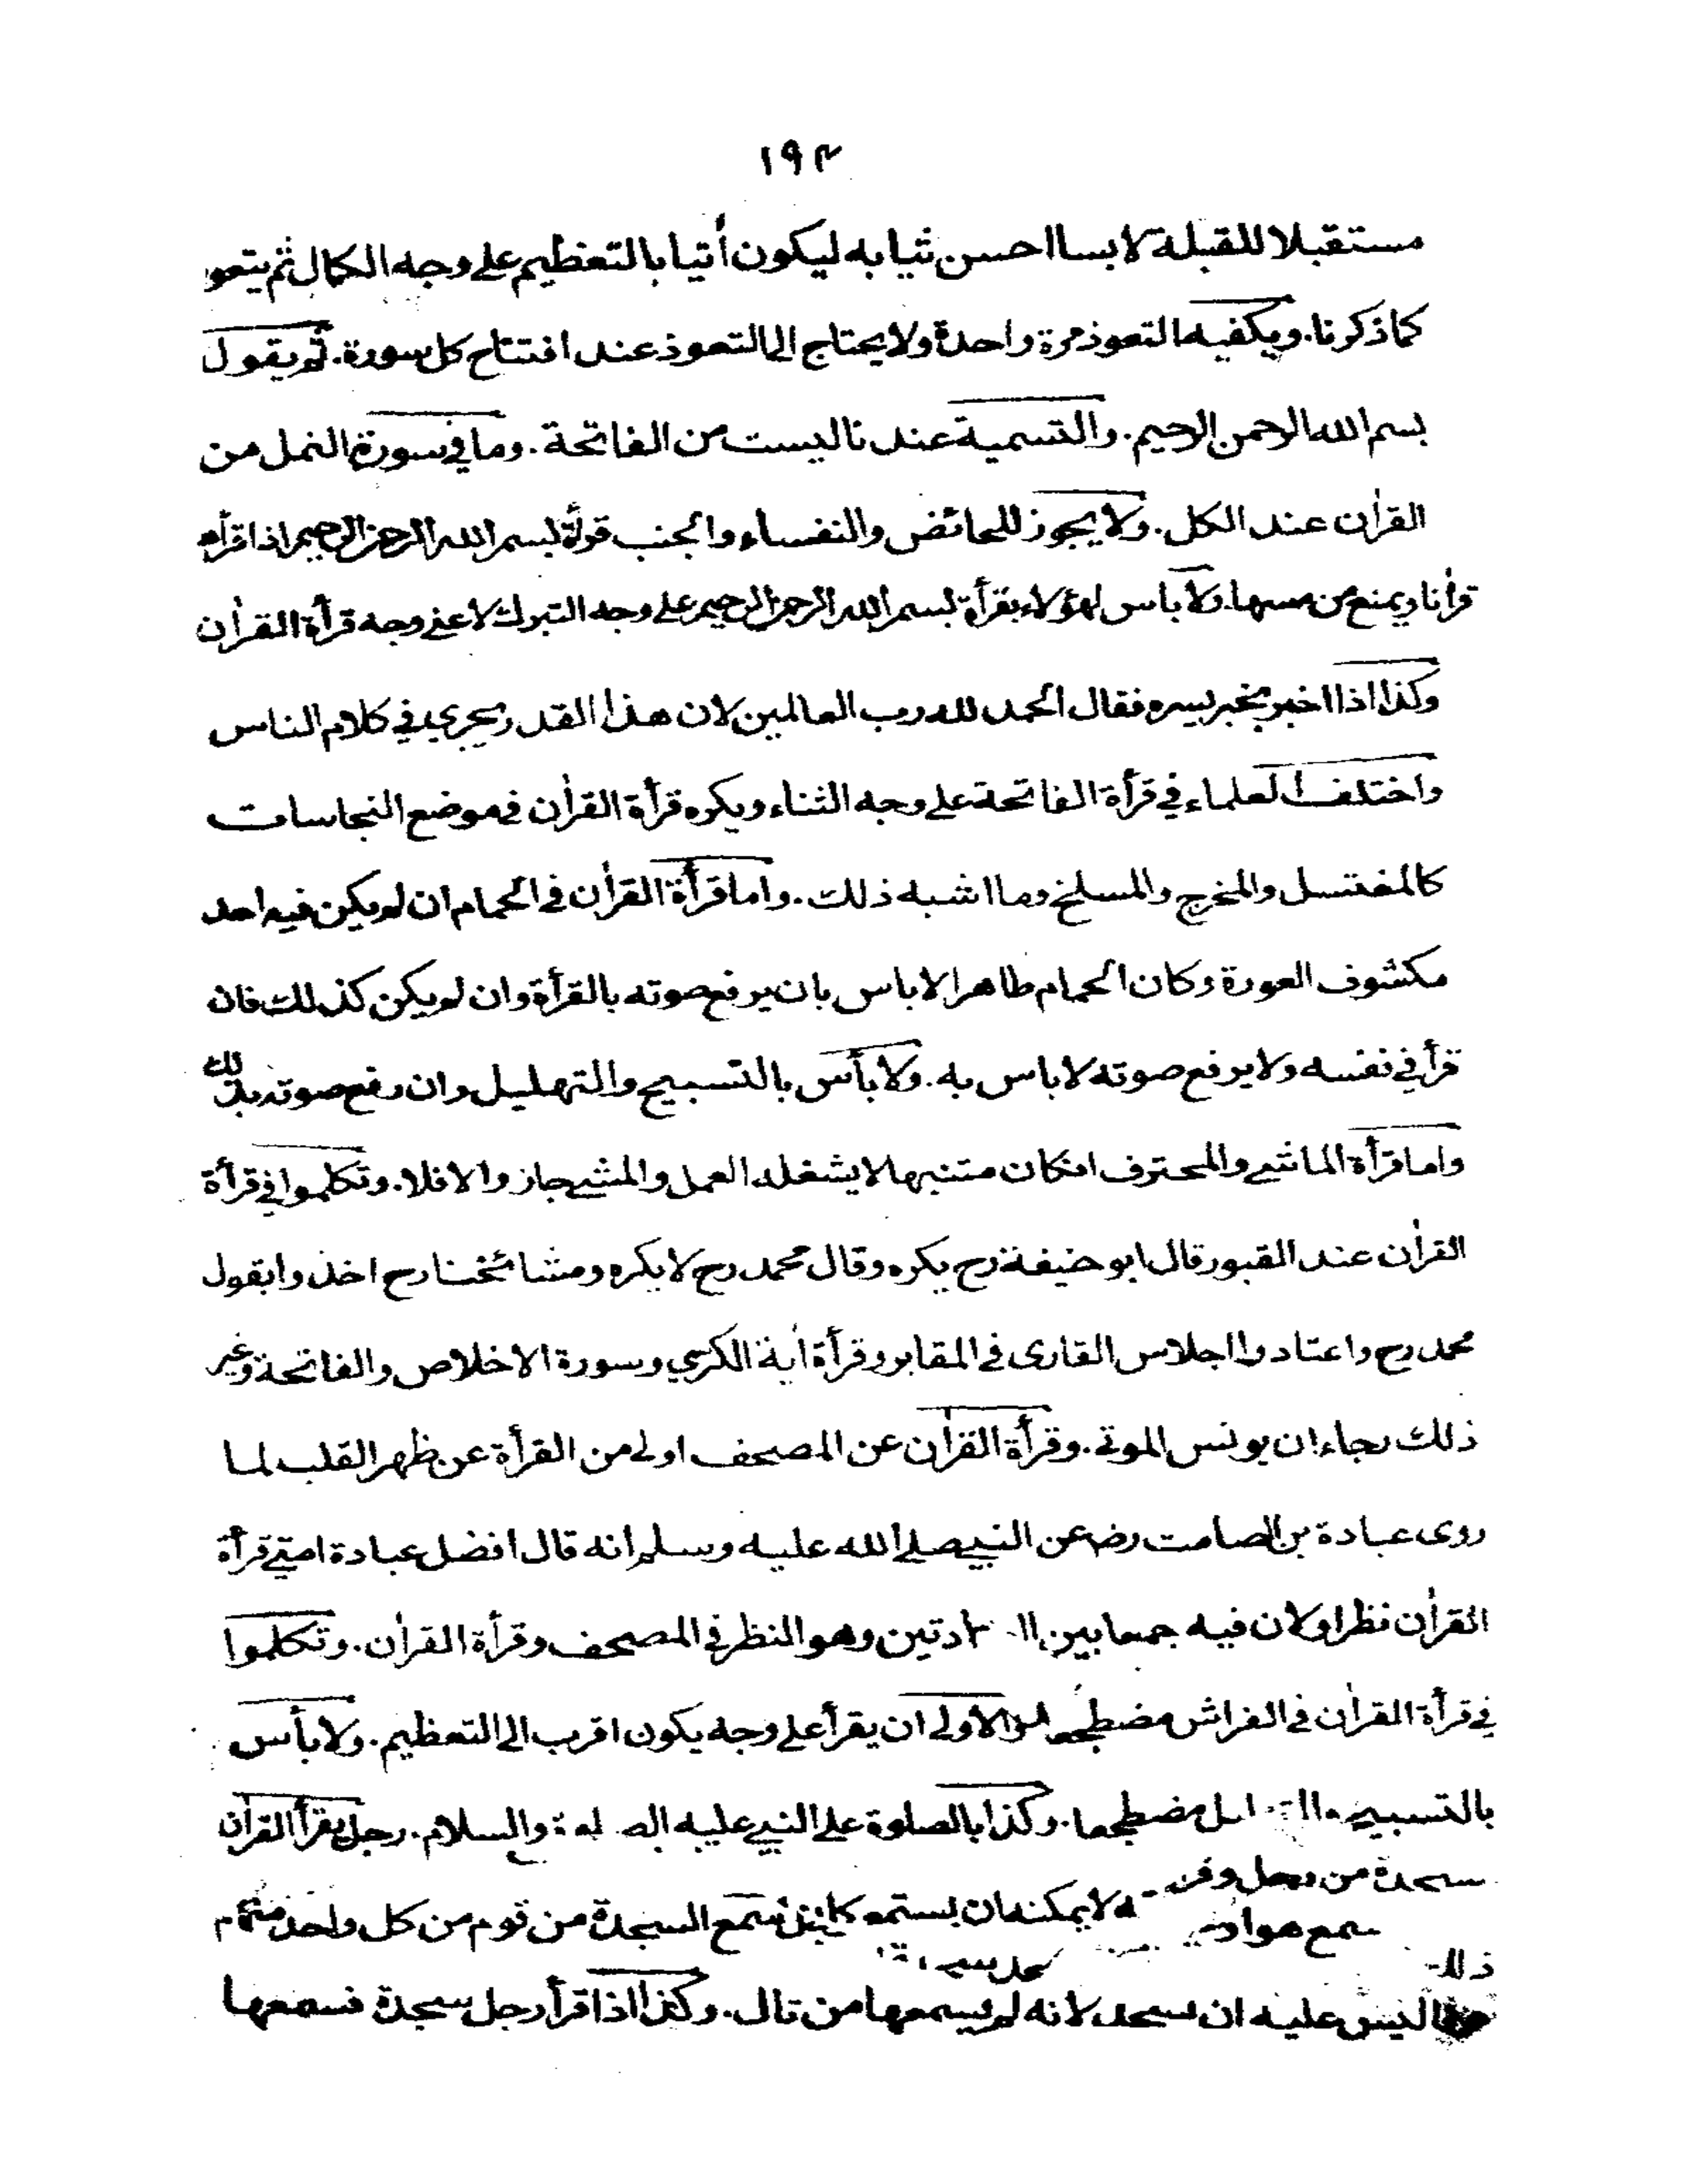 ١٩٢
مستقبلا للقبلة لابسا احسن ثيابه ليكون أتيا بالتعظيم على وجه الكمال ثم يتعو
كما ذكرنا. ويكفيه التعوذ مرة واحدة ولا يحتاج الى التعوذ عند افتتاح كل سورة. ثم يقول
بسم الله الرحمن الرحيم. والتسمية عندنا ليست من الفاتحة. وما في سورة النمل من
القرأن عند الكل. ولا يجوز للحائض والنفساء والجنب قرأة بسم الله الرحمن الرحيم اذا قرأه
قرأنا ويمنع من مسها. ولا باس لهؤلاء بقرأة بسم الله الرحمن الرحيم على وجه التبرك لا على وجه قرأة القرأن
وكذا اذا اخبر بخبر يسره فقال الحمد لله رب العالمين لان هذا القدر يجري في كلام الناس
واختلف العلماء في قرأة الفاتحة على وجه الثناء ويكره قرأة القرأن في موضع النجاسات
كالمغتسل والمخرج والمسلخ وما اشبه ذلك. واما قرأة القرأن في الحمام ان لم يكن فيه احد
مكشوف العورة وكان الحمام طاهرا لا باس بان يرفع صوته بالقرأة وان لم يكن كذلك فان
قرأ في نفسه ولا يرفع صوته لا باس به. ولا بأس بالتسبيح والتهليل وان رفع صوته بذلك
واما قرأة الماشي والمحترف انكان متنبها لا يشغله العمل والمشي جاز والا فلا. وتكلموا في قرأة
القرأن عند القبور قال ابو حنيفة رح يكره وقال محمد رح لا يكره ومشائخنا رح اخذوا بقول
محمد رح واعتادوا اجلاس القارى في المقابر وقرأة أية الكرسي وسورة الاخلاص والفاتحة وغير
ذلك رجاء ان يونس الموتى. وقرأة القرأن عن المصحف اولى من القرأة عن ظهر القلب لما
روى عبادة بن الصامت رضـ عن النبي صلى الله عليه وسلم انه قال افضل عبادة امتي قرأة
القرأن نظرا ولان فيه جمعا بين ادتين وهو النظر في المصحف وقرأة القرأن. وتكلموا
في قرأة القرأن في الفراش مضطجعا والاولى ان يقرأ على وجه يكون اقرب الى التعظيم. ولا بأس
بالتسبيح مضطجعا. وكذا بالصلوة على النبي عليه الصلوة والسلام. رجل يقرأ القرأن
سجدة من رجل
لا يمكنه ان يستمع سمع السجدة من قوم من كل واحد منهم
ذلك
ليس عليه ان يسجد لانه لم يسمعها من تال. وكذا اذا قرأ رجل سجدة فسمعها